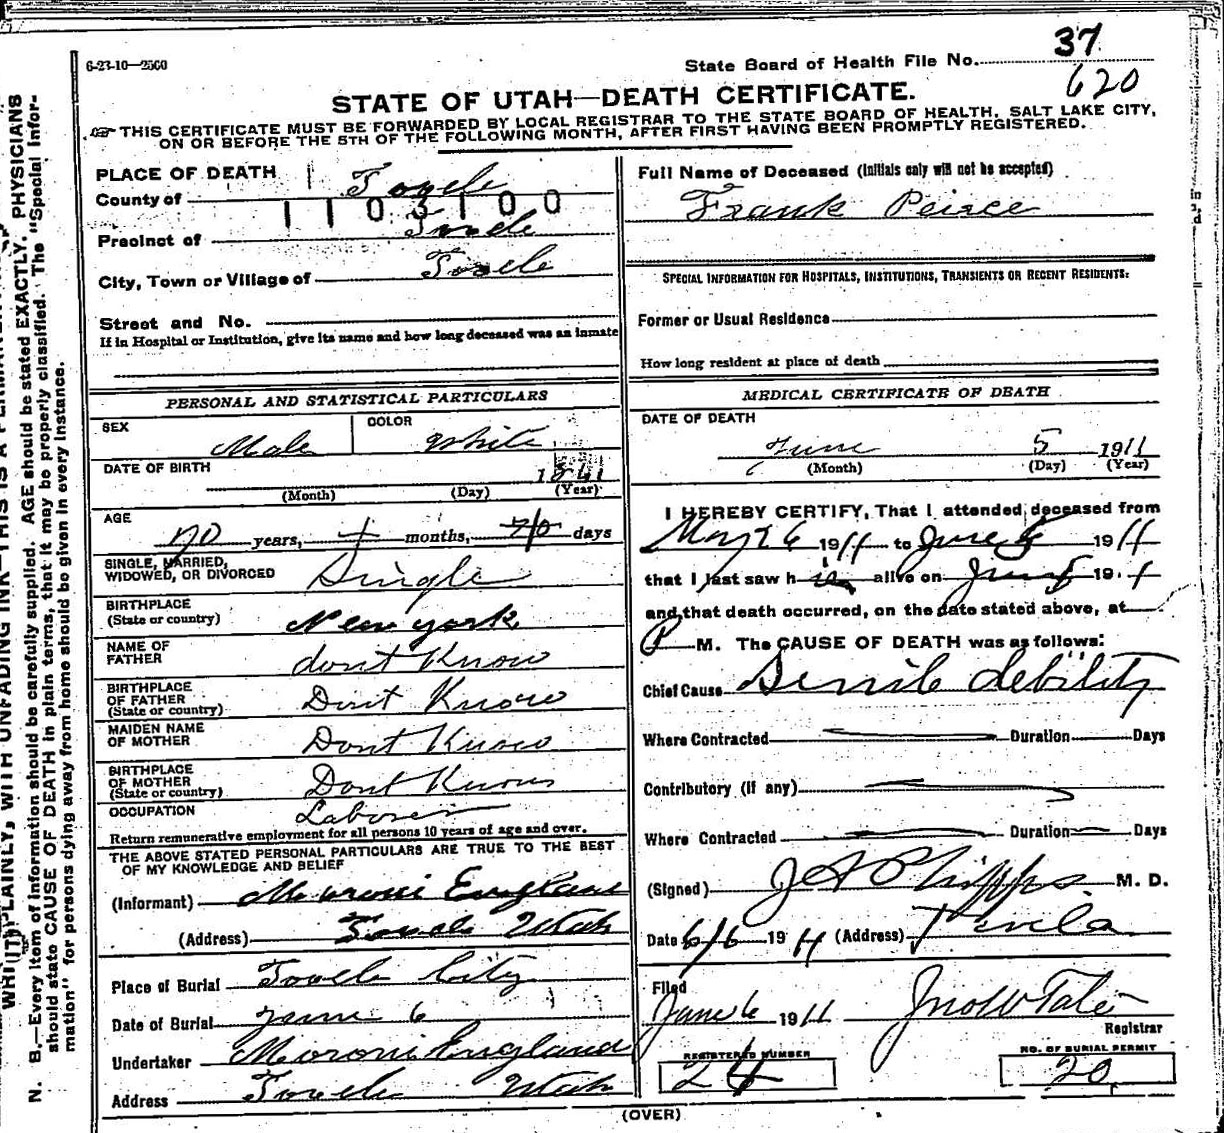 6-23-10—2500
State Board of Health File No. 37
620
STATE OF UTAH—DEATH CERTIFICATE.
THIS CERTIFICATE MUST BE FORWARDED BY LOCAL REGISTRAR TO THE STATE BOARD OF HEALTH, SALT LAKE CITY,
ON OR BEFORE THE 5TH OF THE FOLLOWING MONTH, AFTER FIRST HAVING BEEN PROMPTLY REGISTERED.
PLACE OF DEATH
County of Tooele
1 1 0 3 1 0 0
Precinct of Tooele
City, Town or Village of Tooele
Street and No.
If in Hospital or Institution, give its name and how long deceased was an inmate
Full Name of Deceased (Initials only will not be accepted)
Frank Peirce
SPECIAL INFORMATION FOR HOSPITALS, INSTITUTIONS, TRANSIENTS OR RECENT RESIDENTS:
Former or Usual Residence
How long resident at place of death
PERSONAL AND STATISTICAL PARTICULARS
SEX Male COLOR White
DATE OF BIRTH 1841
(Month) (Day) (Year)
AGE
70 years, months, days
SINGLE, MARRIED,
WIDOWED, OR DIVORCED Single
BIRTHPLACE
(State or country) New york
NAME OF
FATHER dont Know
BIRTHPLACE
OF FATHER
(State or country) Dont Know
MAIDEN NAME
OF MOTHER Dont Know
BIRTHPLACE
OF MOTHER
(State or country) Dont Know
OCCUPATION Laborer
Return remunerative employment for all persons 10 years of age and over.
THE ABOVE STATED PERSONAL PARTICULARS ARE TRUE TO THE BEST
OF MY KNOWLEDGE AND BELIEF
(Informant) Moroni England
(Address) Tooele Utah
Place of Burial Tooele City
Date of Burial June 6
Undertaker Moroni England
Address Tooele Utah
MEDICAL CERTIFICATE OF DEATH
DATE OF DEATH
June 5 1911
(Month) (Day) (Year)
I HEREBY CERTIFY, That I attended deceased from
May 26 1911 to June 5 1911
that I last saw h im alive on June 5 191
and that death occurred, on the date stated above, at
P M. The CAUSE OF DEATH was as follows:
Chief Cause Senile debility
Where Contracted Duration Days
Contributory (if any)
Where Contracted Duration Days
(Signed) J A Phipps M. D.
Date 6/6 1911 (Address) Tooele
Filed
June 6 1911 Jno W Tate
Registrar
REGISTERED NUMBER
24
NO. OF BURIAL PERMIT
20
(OVER)
N. B.—Every item of information should be carefully supplied. AGE should be stated EXACTLY. PHYSICIANS
should state CAUSE OF DEATH in plain terms, that it may be properly classified. The "Special Infor-
mation" for persons dying away from home should be given in every instance.